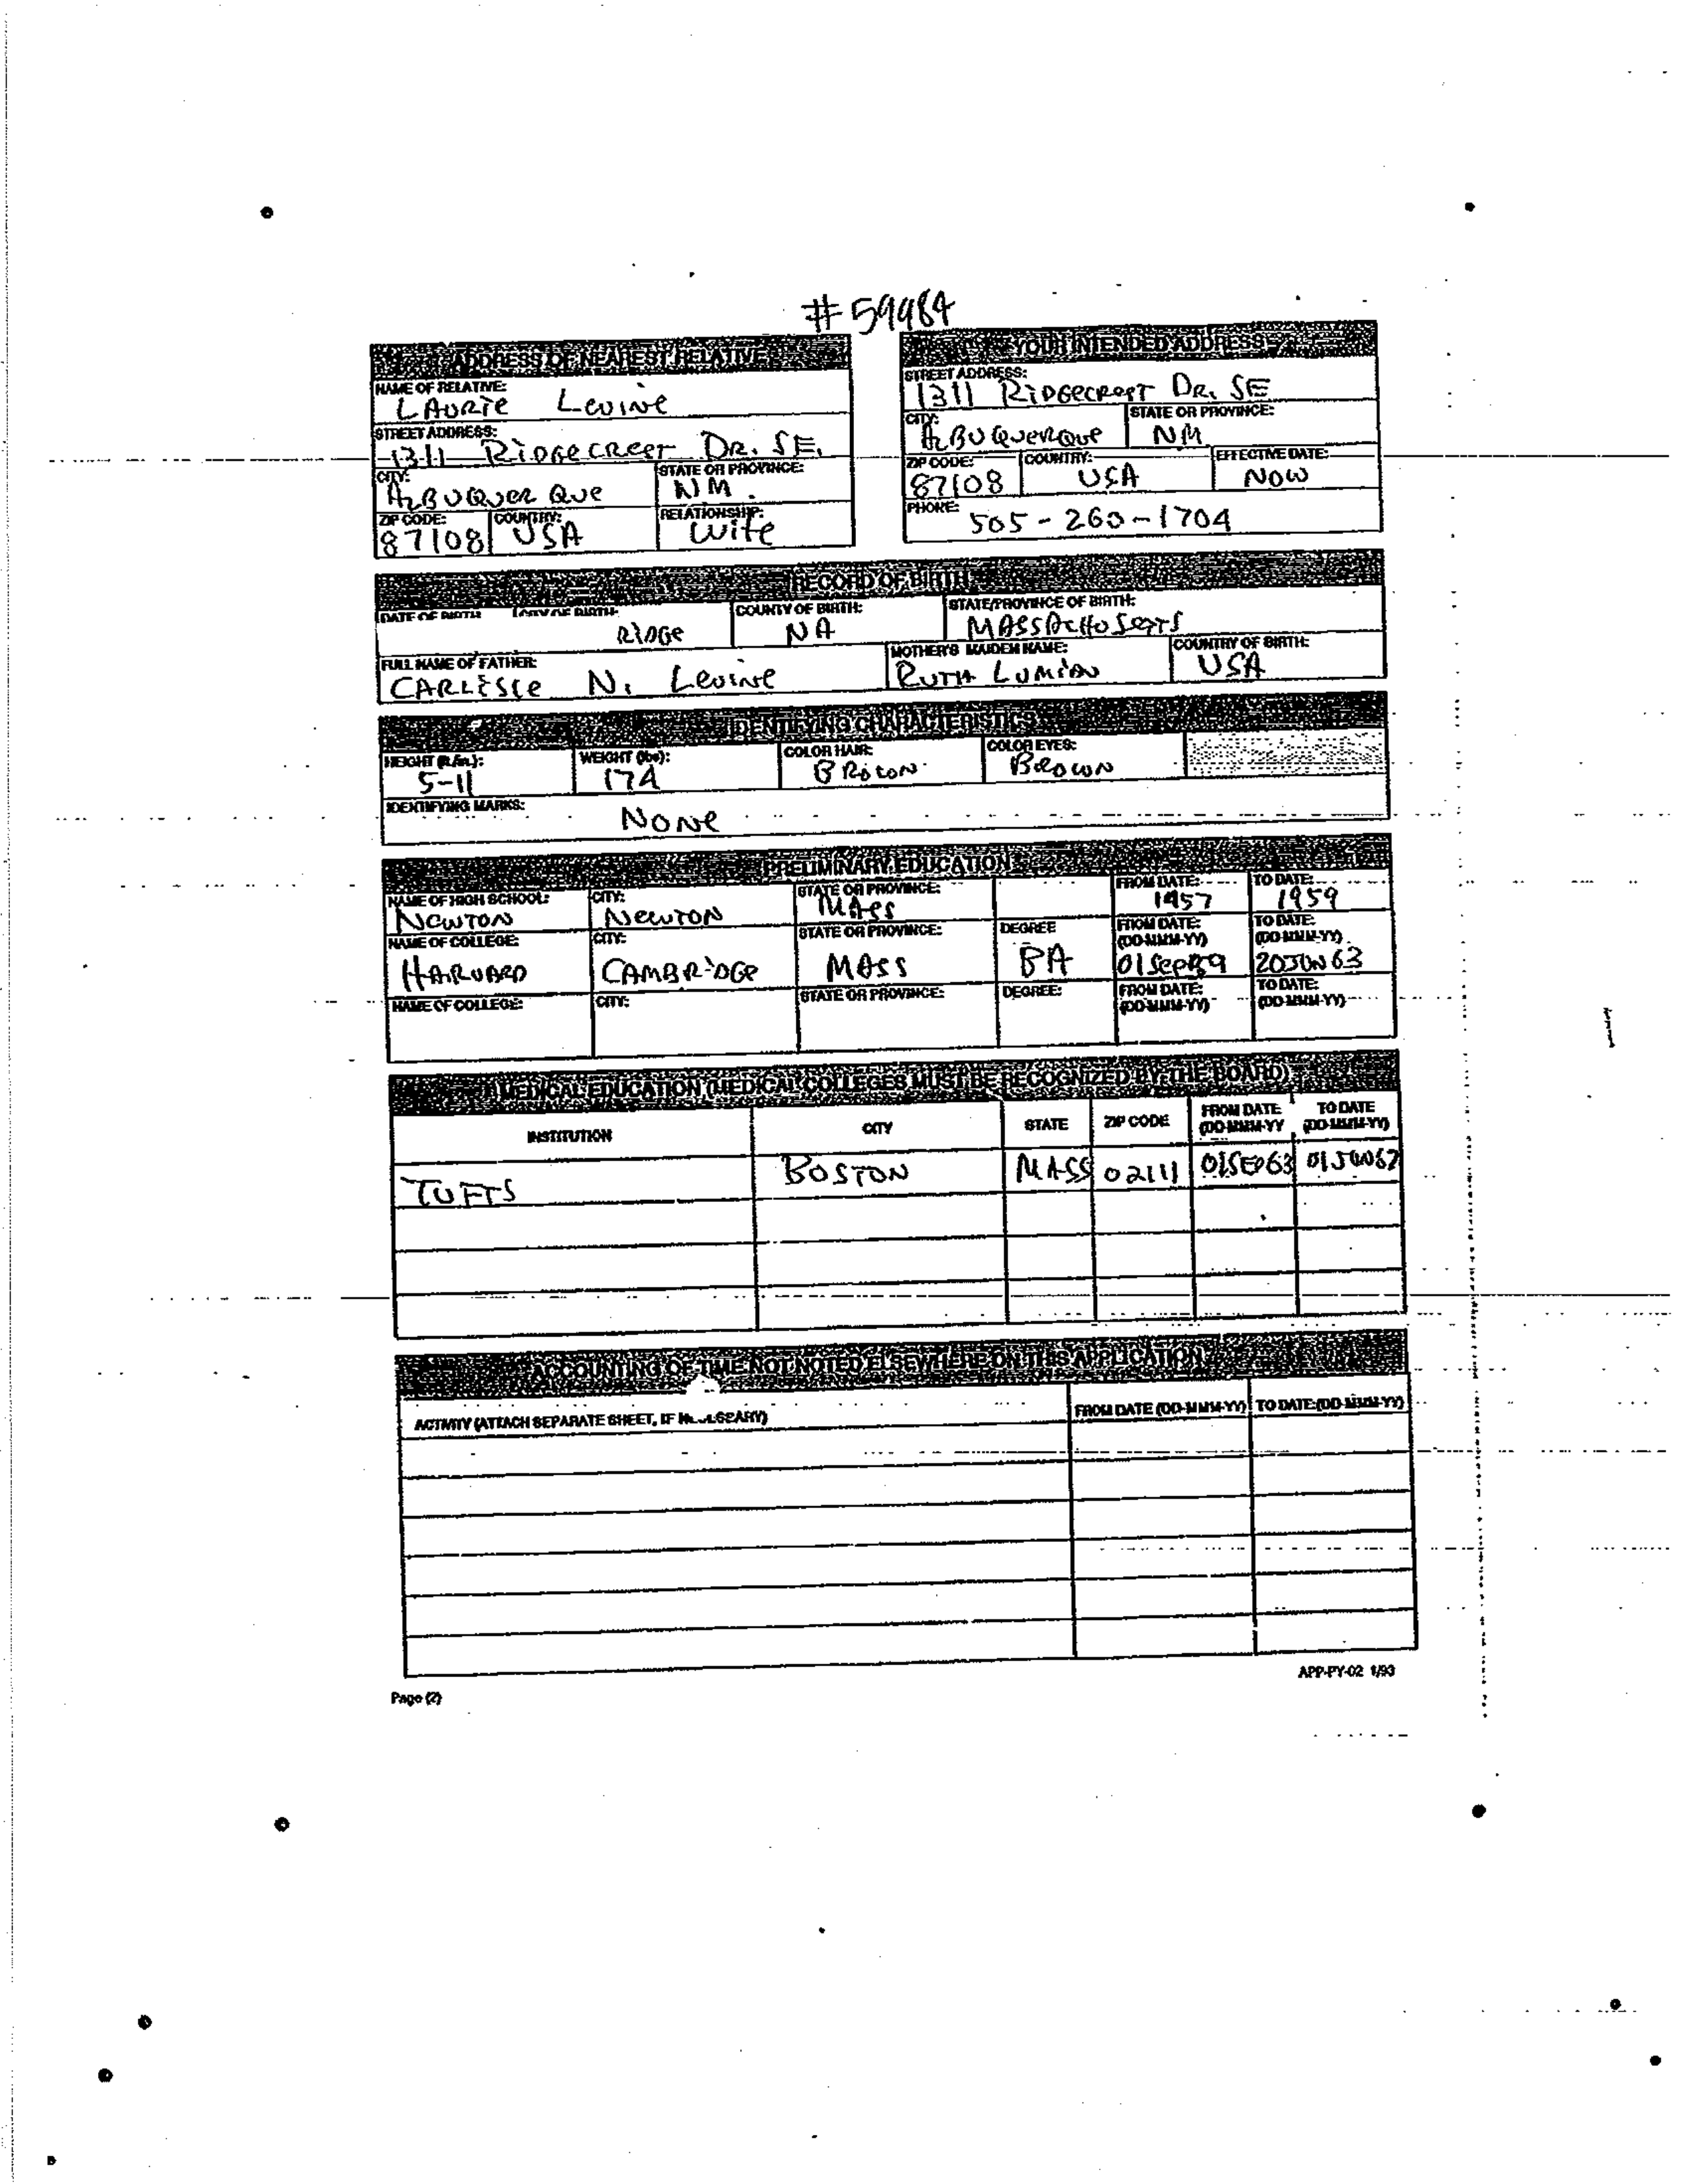 #59984
ADDRESS OF NEAREST RELATIVE
NAME OF RELATIVE:
LAURIE Levine
STREET ADDRESS:
1311 Ridgecrest DR. SE.
CITY: STATE OR PROVINCE:
ALBUQUERQUE NM.
ZIP CODE: COUNTRY: RELATIONSHIP:
87108 USA Wife
YOUR INTENDED ADDRESS
STREET ADDRESS:
1311 Ridgecrest DR. SE
CITY: STATE OR PROVINCE:
ALBUQUERQUE NM
ZIP CODE: COUNTRY: EFFECTIVE DATE:
87108 USA NOW
PHONE: 505-260-1704
RECORD OF BIRTH
DATE OF BIRTH CITY OF BIRTH: COUNTY OF BIRTH: STATE/PROVINCE OF BIRTH:
RIDGE NA
FULL NAME OF FATHER: MOTHER'S MAIDEN NAME: COUNTRY OF BIRTH:
N. Levine RUTH USA
IDENTIFYING CHARACTERISTICS
HEIGHT (ft./in.): WEIGHT (lbs): COLOR HAIR: COLOR EYES:
5-11 174 BROWN BROWN
IDENTIFYING MARKS:
NONE
PRELIMINARY EDUCATION
NAME OF HIGH SCHOOL: CITY: STATE OR PROVINCE: FROM DATE: TO DATE:
NEWTON NEWTON MASS 1957 1959
NAME OF COLLEGE: CITY: STATE OR PROVINCE: DEGREE FROM DATE: (DD-MMM-YY) TO DATE: (DD-MMM-YY)
HARVARD CAMBRIDGE MASS BA 01Sep59 20JUN63
NAME OF COLLEGE: CITY: STATE OR PROVINCE: DEGREE: FROM DATE: (DD-MMM-YY) TO DATE: (DD-MMM-YY)
MEDICAL EDUCATION (MEDICAL COLLEGES MUST BE RECOGNIZED BY THE BOARD)
INSTITUTION CITY STATE ZIP CODE FROM DATE (DD-MMM-YY TO DATE (DD-MMM-YY)
TUFTS BOSTON MASS 02111 01SEP63 01JUN67
ACCOUNTING OF TIME NOT NOTED ELSEWHERE ON THIS APPLICATION
ACTIVITY (ATTACH SEPARATE SHEET, IF NECESSARY) FROM DATE (DD-MMM-YY) TO DATE:(DD-MMM-YY)
APP-PY-02 1/93
Page (2)